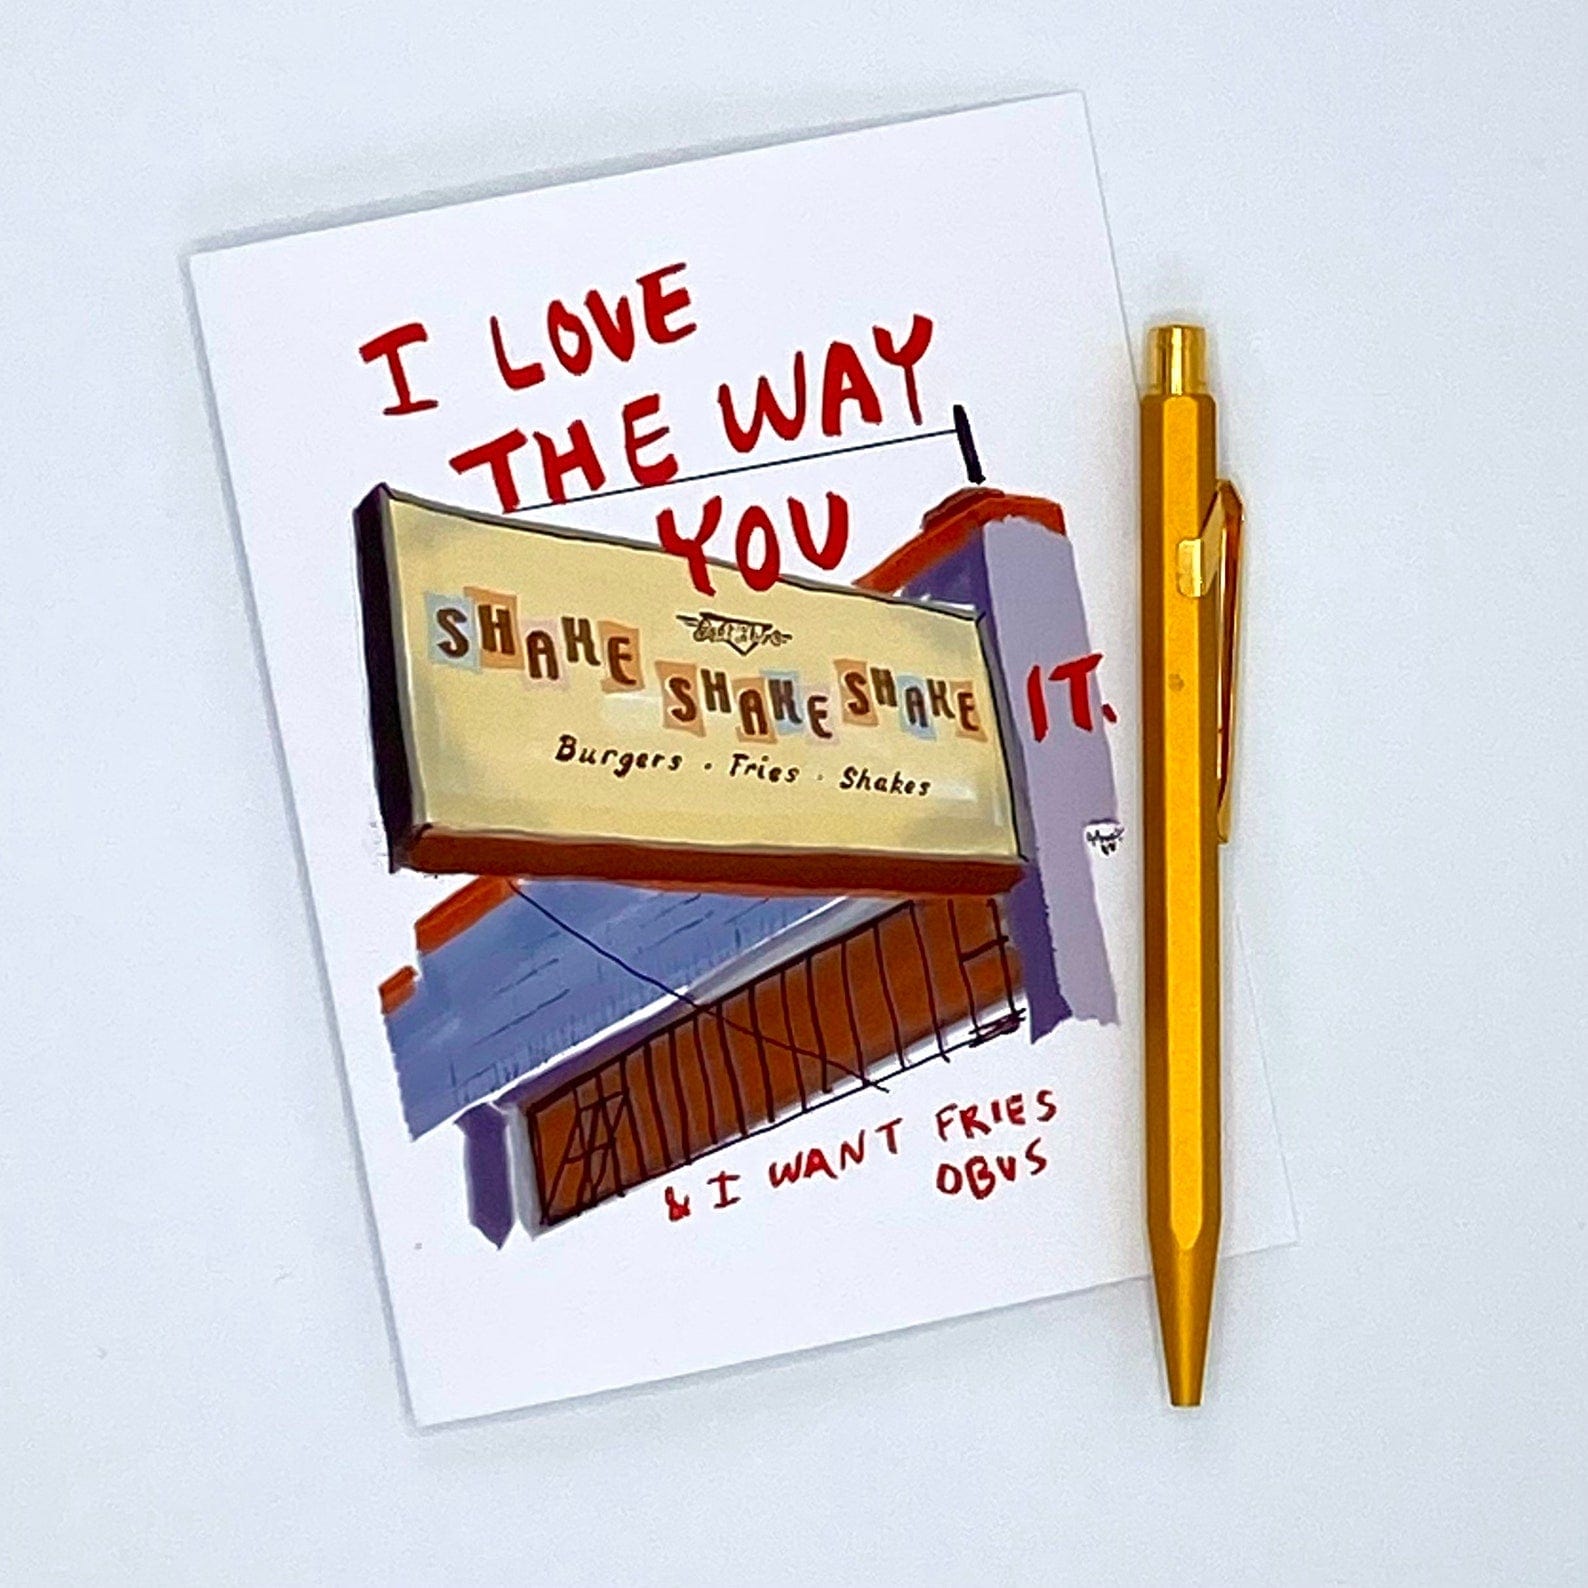 I LOVE
THE WAY
YOU
SHAKE SHAKE SHAKE
IT.
Burgers · Fries · Shakes
& I WANT FRIES
OBVS